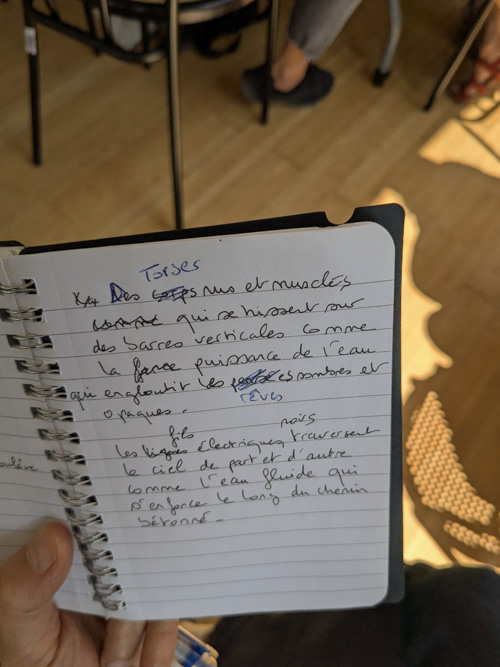 Torses
Des corps nus et musclés
comme qui se hissent sur
des barres verticales comme
la force puissance de l'eau
qui engloutit les pensées sombres et
rêves
opaques.
fils noirs
Les lignes électriques traversent
le ciel de part et d'autre
comme l'eau fluide qui
s'enfonce le long du chemin
bétonné.